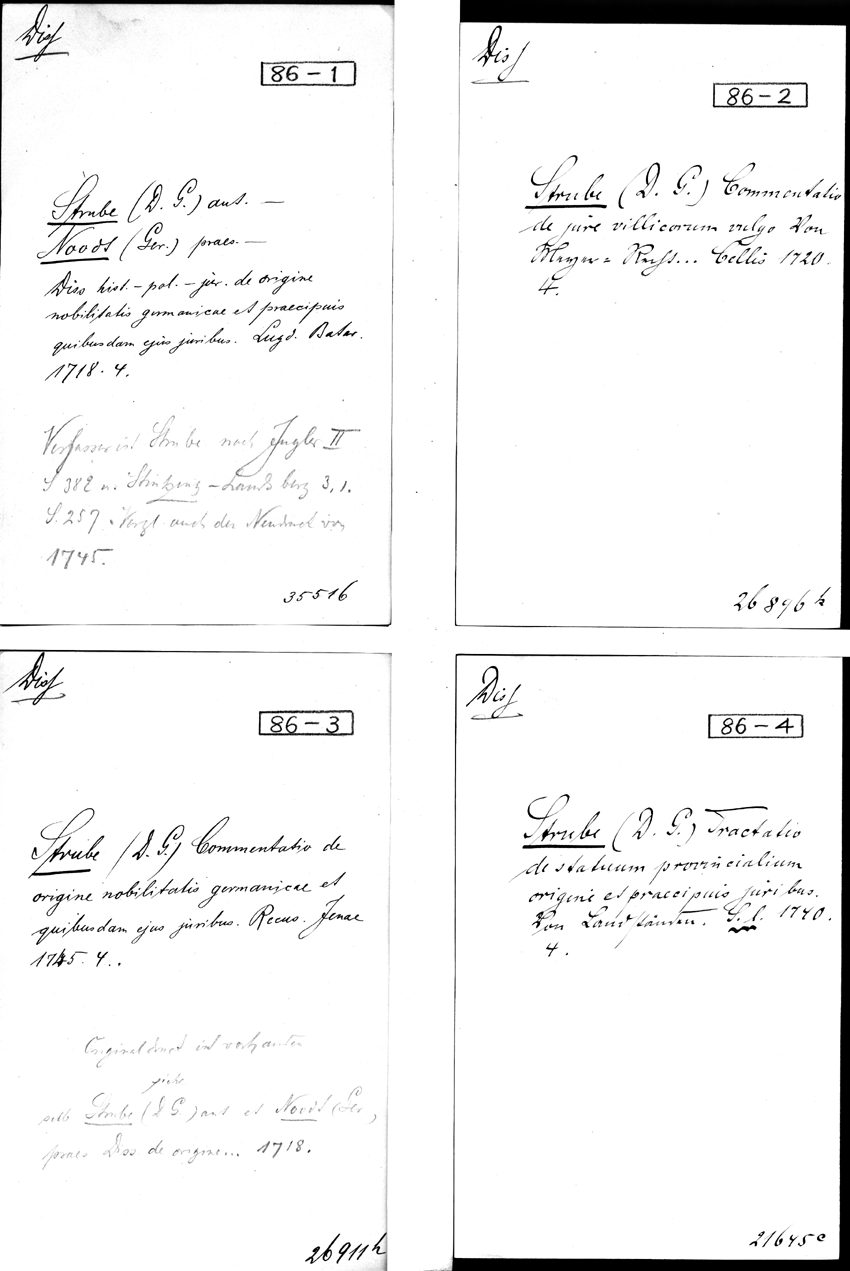 Diss
86-1
Strube (D. G.) aut. —
Noodt (Ger.) praes. —
Diss hist.-pol.-jur. de origine
nobilitatis germanicae et praecipuis
quibusdam ejus juribus. Lugd. Batav.
1718. 4.
Verfasser ist Strube nach Jugler II
S 382 u. Stintzing-Landsberg 3,1.
S. 257. Vergl. auch den Neudruck von
1745.
35516
Diss
86-2
Strube (D. G.) Commentatio
de jure villicorum vulgo Von
Meyer=Recht... Cellis 1720.
4.
26896h
Diss
86-3
Strube (D. G.) Commentatio de
origine nobilitatis germanicae et
quibusdam ejus juribus. Recus. Jenae
1745. 4..
Originaldruck ist vorhanden
siehe
Strube (D G.) aut et Noodt (Ger.,
praes Diss de origine... 1718.
26911h
Diss
86-4
Strube (D. G.) Tractatio
de statuum provincialium
origine et praecipuis juribus.
Von Landständen. S. l. 1740.
4.
21645c